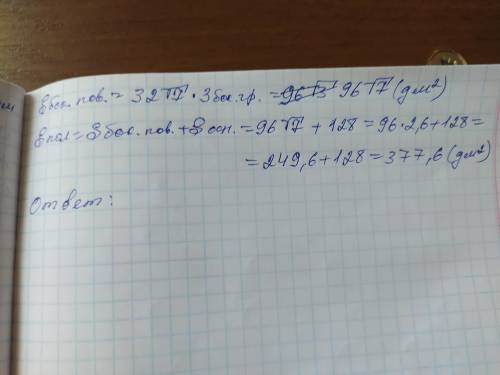 Sбок. пов. = 32√7 · 3бок. гр. = 96√7 (дм²)
Sпол = Sбок. пов. + Sосн. = 96√7 + 128 = 96 · 2,6 + 128 =
= 249,6 + 128 = 377,6 (дм²)
Ответ: